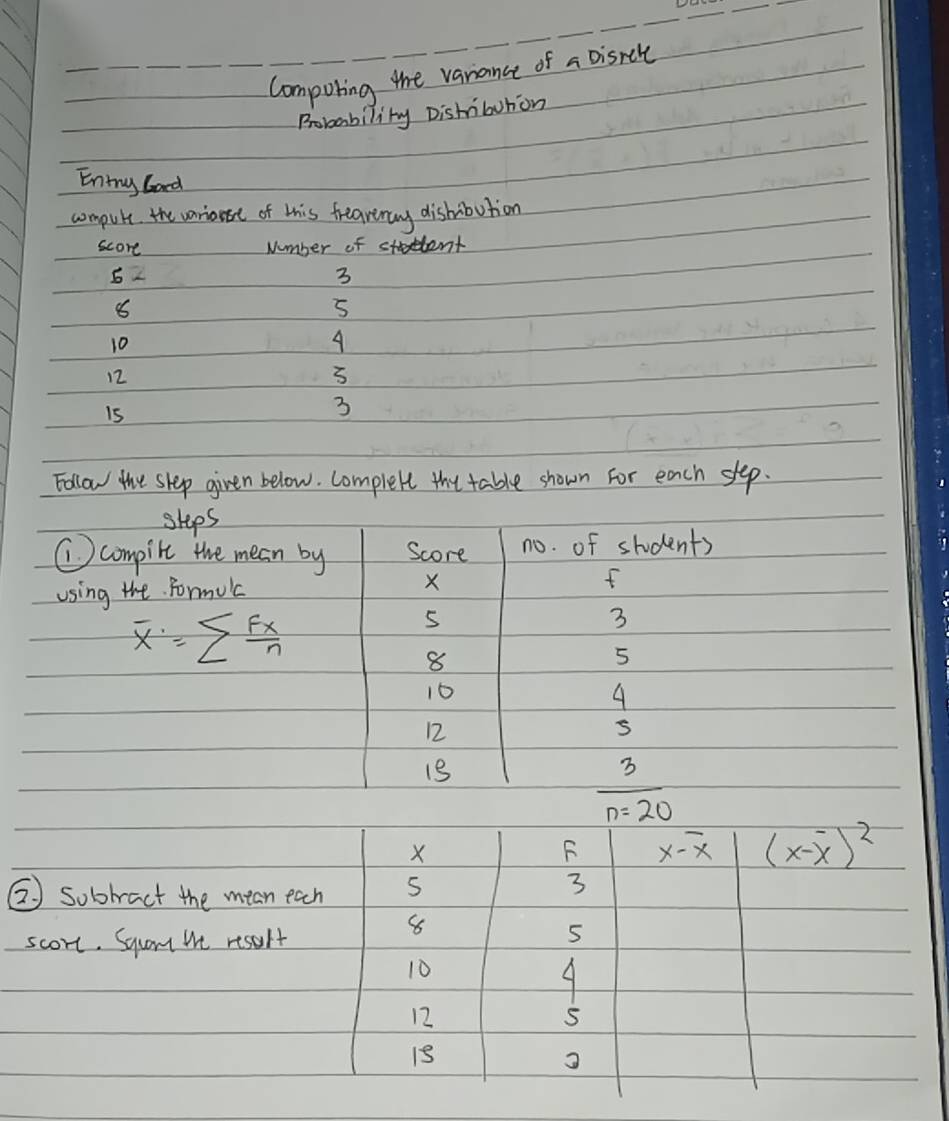 Computing the variance of a Disrete
Probability Distribution
Entry Card
compute the variance of this frequency distribution
score Number of student
5 3
8 5
10 4
12 5
15 3
Follow the step given below. Complete the table shown for each step.
steps
1. compute the mean by Score no. of students
using the formula x f
x̄ = ∑ Fx/n 5 3
8 5
10 4
12 5
15 3
n=20
x F x-x̄ (x-x̄)²
2. Subtract the mean each 5 3
score. Square the result 8 5
10 4
12 5
15 3